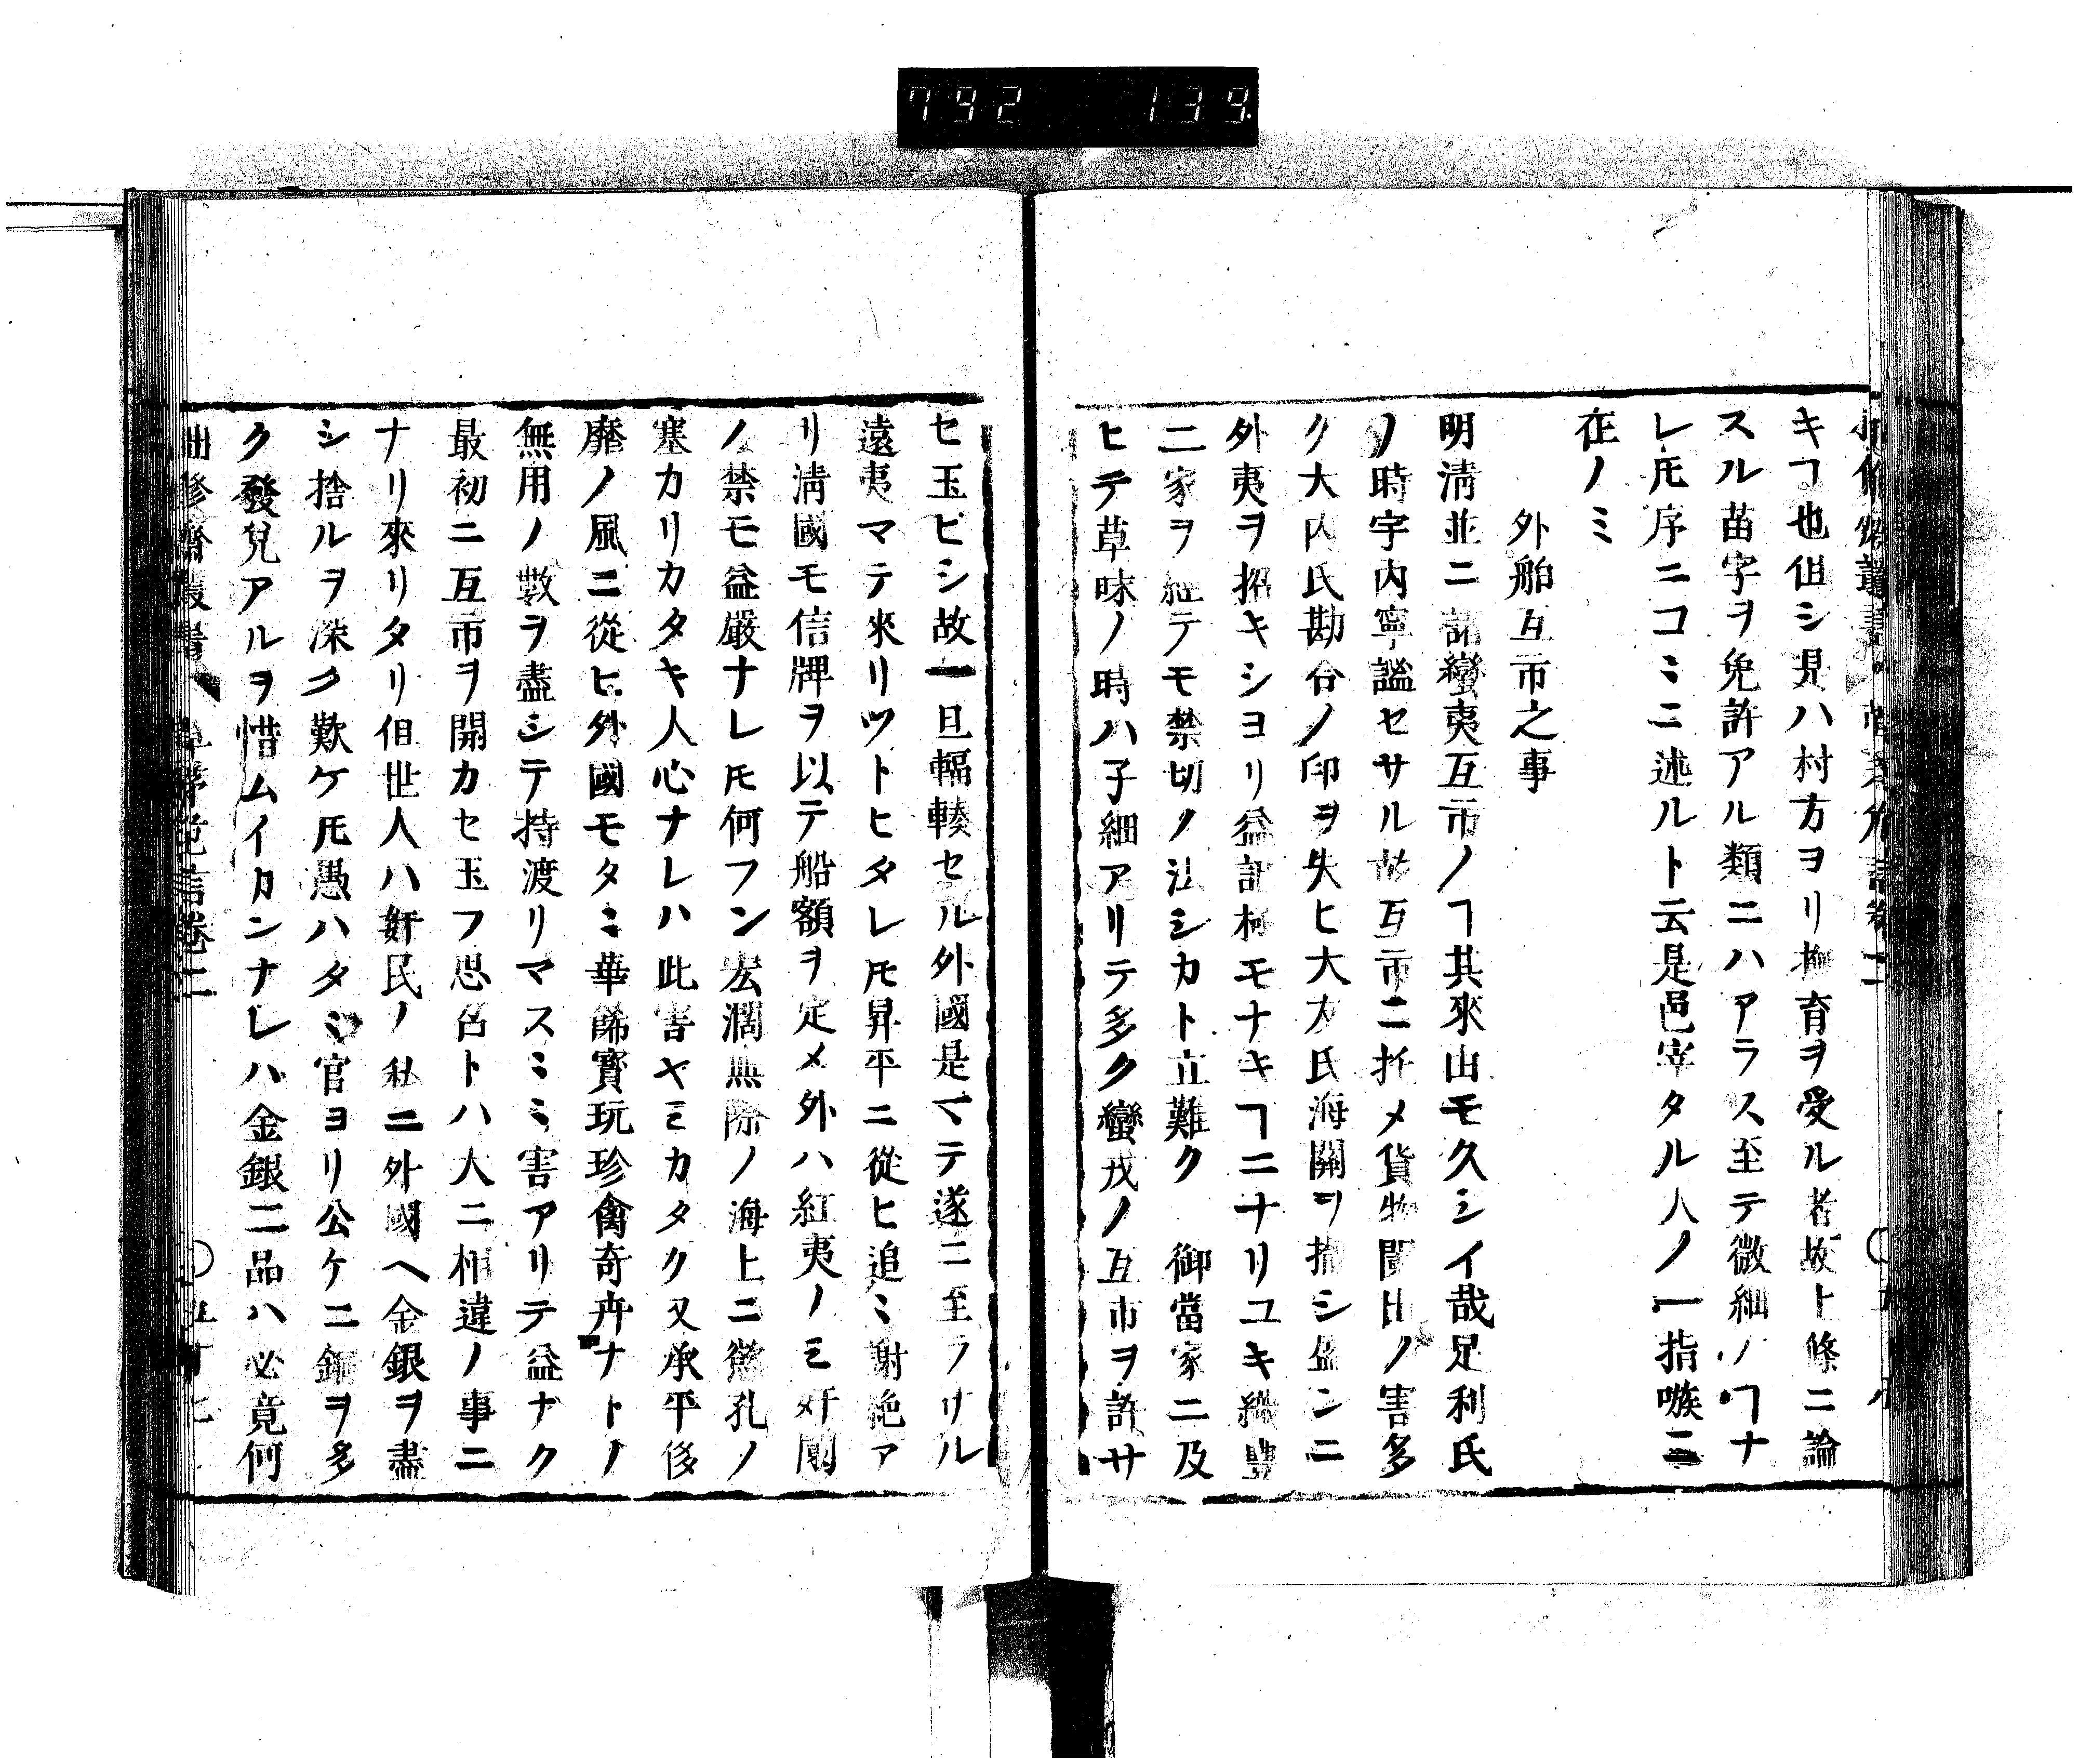 792 139
キヿ也但シ是ハ村方ヨリ撫育ヲ受ル者故上條ニ論
スル苗字ヲ免許アル類ニハアラス至テ微細ノヿナ
レ𪜈序ニコミニ述ルト云是邑宰タル人ノ一指嗾ニ
在ノミ
外舶互市之事
明清並ニ諸蠻夷互市ノヿ其來由モ久シイ哉足利氏
ノ時宇内寧謐セサル故互市ニ托メ貨物闌出ノ害多
ク大内氏勘合ノ印ヲ失ヒ大友氏海關ヲ指シ盛ンニ
外夷ヲ招キシヨリ益訶柅モナキヿニナリユキ織豐
二家ヲ經テモ禁切ノ法シカト立難ク 御當家ニ及
ヒテ草昧ノ時ハ子細アリテ多ク蠻戎ノ互市ヲ許サ
セ玉ヒシ故一旦輻輳セル外國是マテ遂ニ至ラサル
遠夷マテ來リツトヒタレ𪜈昇平ニ從ヒ追ミ謝絶ア
リ清國モ信牌ヲ以テ船額ヲ定メ外ハ紅夷ノミ奸闌
ノ禁モ益嚴ナレ𪜈何フン宏濶無際ノ海上ニ慾孔ノ
塞カリカタキ人心ナレハ此害ヤミカタク又承平侈
靡ノ風ニ從ヒ外國モタミ華飾寶玩珍禽奇卉ナトノ
無用ノ數ヲ盡シテ持渡リマスミミ害アリテ益ナク
最初ニ互市ヲ開カセ玉フ思召トハ大ニ相違ノ事ニ
ナリ來リタリ但世人ハ奸民ノ私ニ外國ヘ金銀ヲ盡
シ捨ルヲ深ク歎ケ𪜈愚ハタミ官ヨリ公ケニ銅ヲ多
ク發兌アルヲ惜ムイカンナレハ金銀二品ハ必竟何